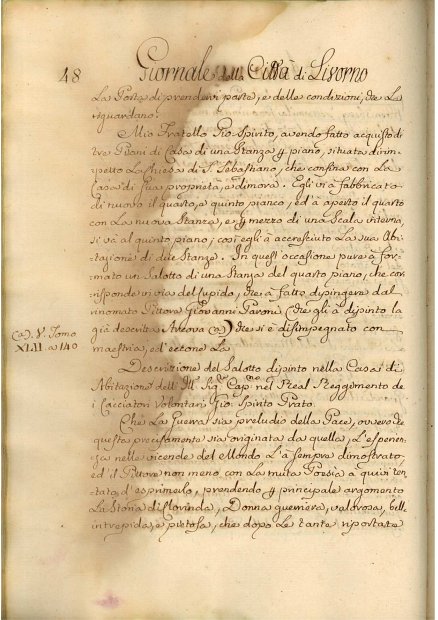 48 Giornale Città di Livorno
La Posta di prendervi parte, e delle condizioni, che La
riguardano.
Mio Fratello Gio Spirito, avendo fatto acquisto di
tre Piani di Casa di una Stanza p piano, situata dirim:
petto La Chiesa di S. Sebastiano, che confina con La
Casa di sua proprietà, e dimora. Egli vi à fabbricato
di nuovo il quarto, e quinto piano, ed à aperto il quarto
con La nuova Stanza, e p mezzo di una Scala interna,
si và al quinto piano, così egli à accresciuto La sua Abi:
tazione di due Stanze. In quest' occasione pure à for:
mato un Salotto di una Stanza del quarto piano, che cor:
risponde in via del Supido, che à fatto dipingere dal
rinomato Pittore Giovanni che gli à dipinto la
già descritta Alcova (a), che si è disimpegnato con
maestria, ed eccone La
(a) V. Tomo
XLII. a 140
Descrizione del Salotto dipinto nella Casa di
Abitazione dell' Ill. Sig. Cap. nel Real Reggimento de
i Cacciatori Volontari Gio. Spirito Prato.
Che La Guerra sia preludio della Pace, ovvero che
questa precisamente sia originata da quella, L'esperien:
za nelle vicende del Mondo L'à sempre dimostrato,
ed il Pittore non meno con La muta Poesia à quivi ten:
tato d'esprimerlo, prendendo p principale argomento
La Storia di Clorinda, Donna guerriera, valorosa, bella,
intrepida, e pietosa, che dopo Le tante riportate